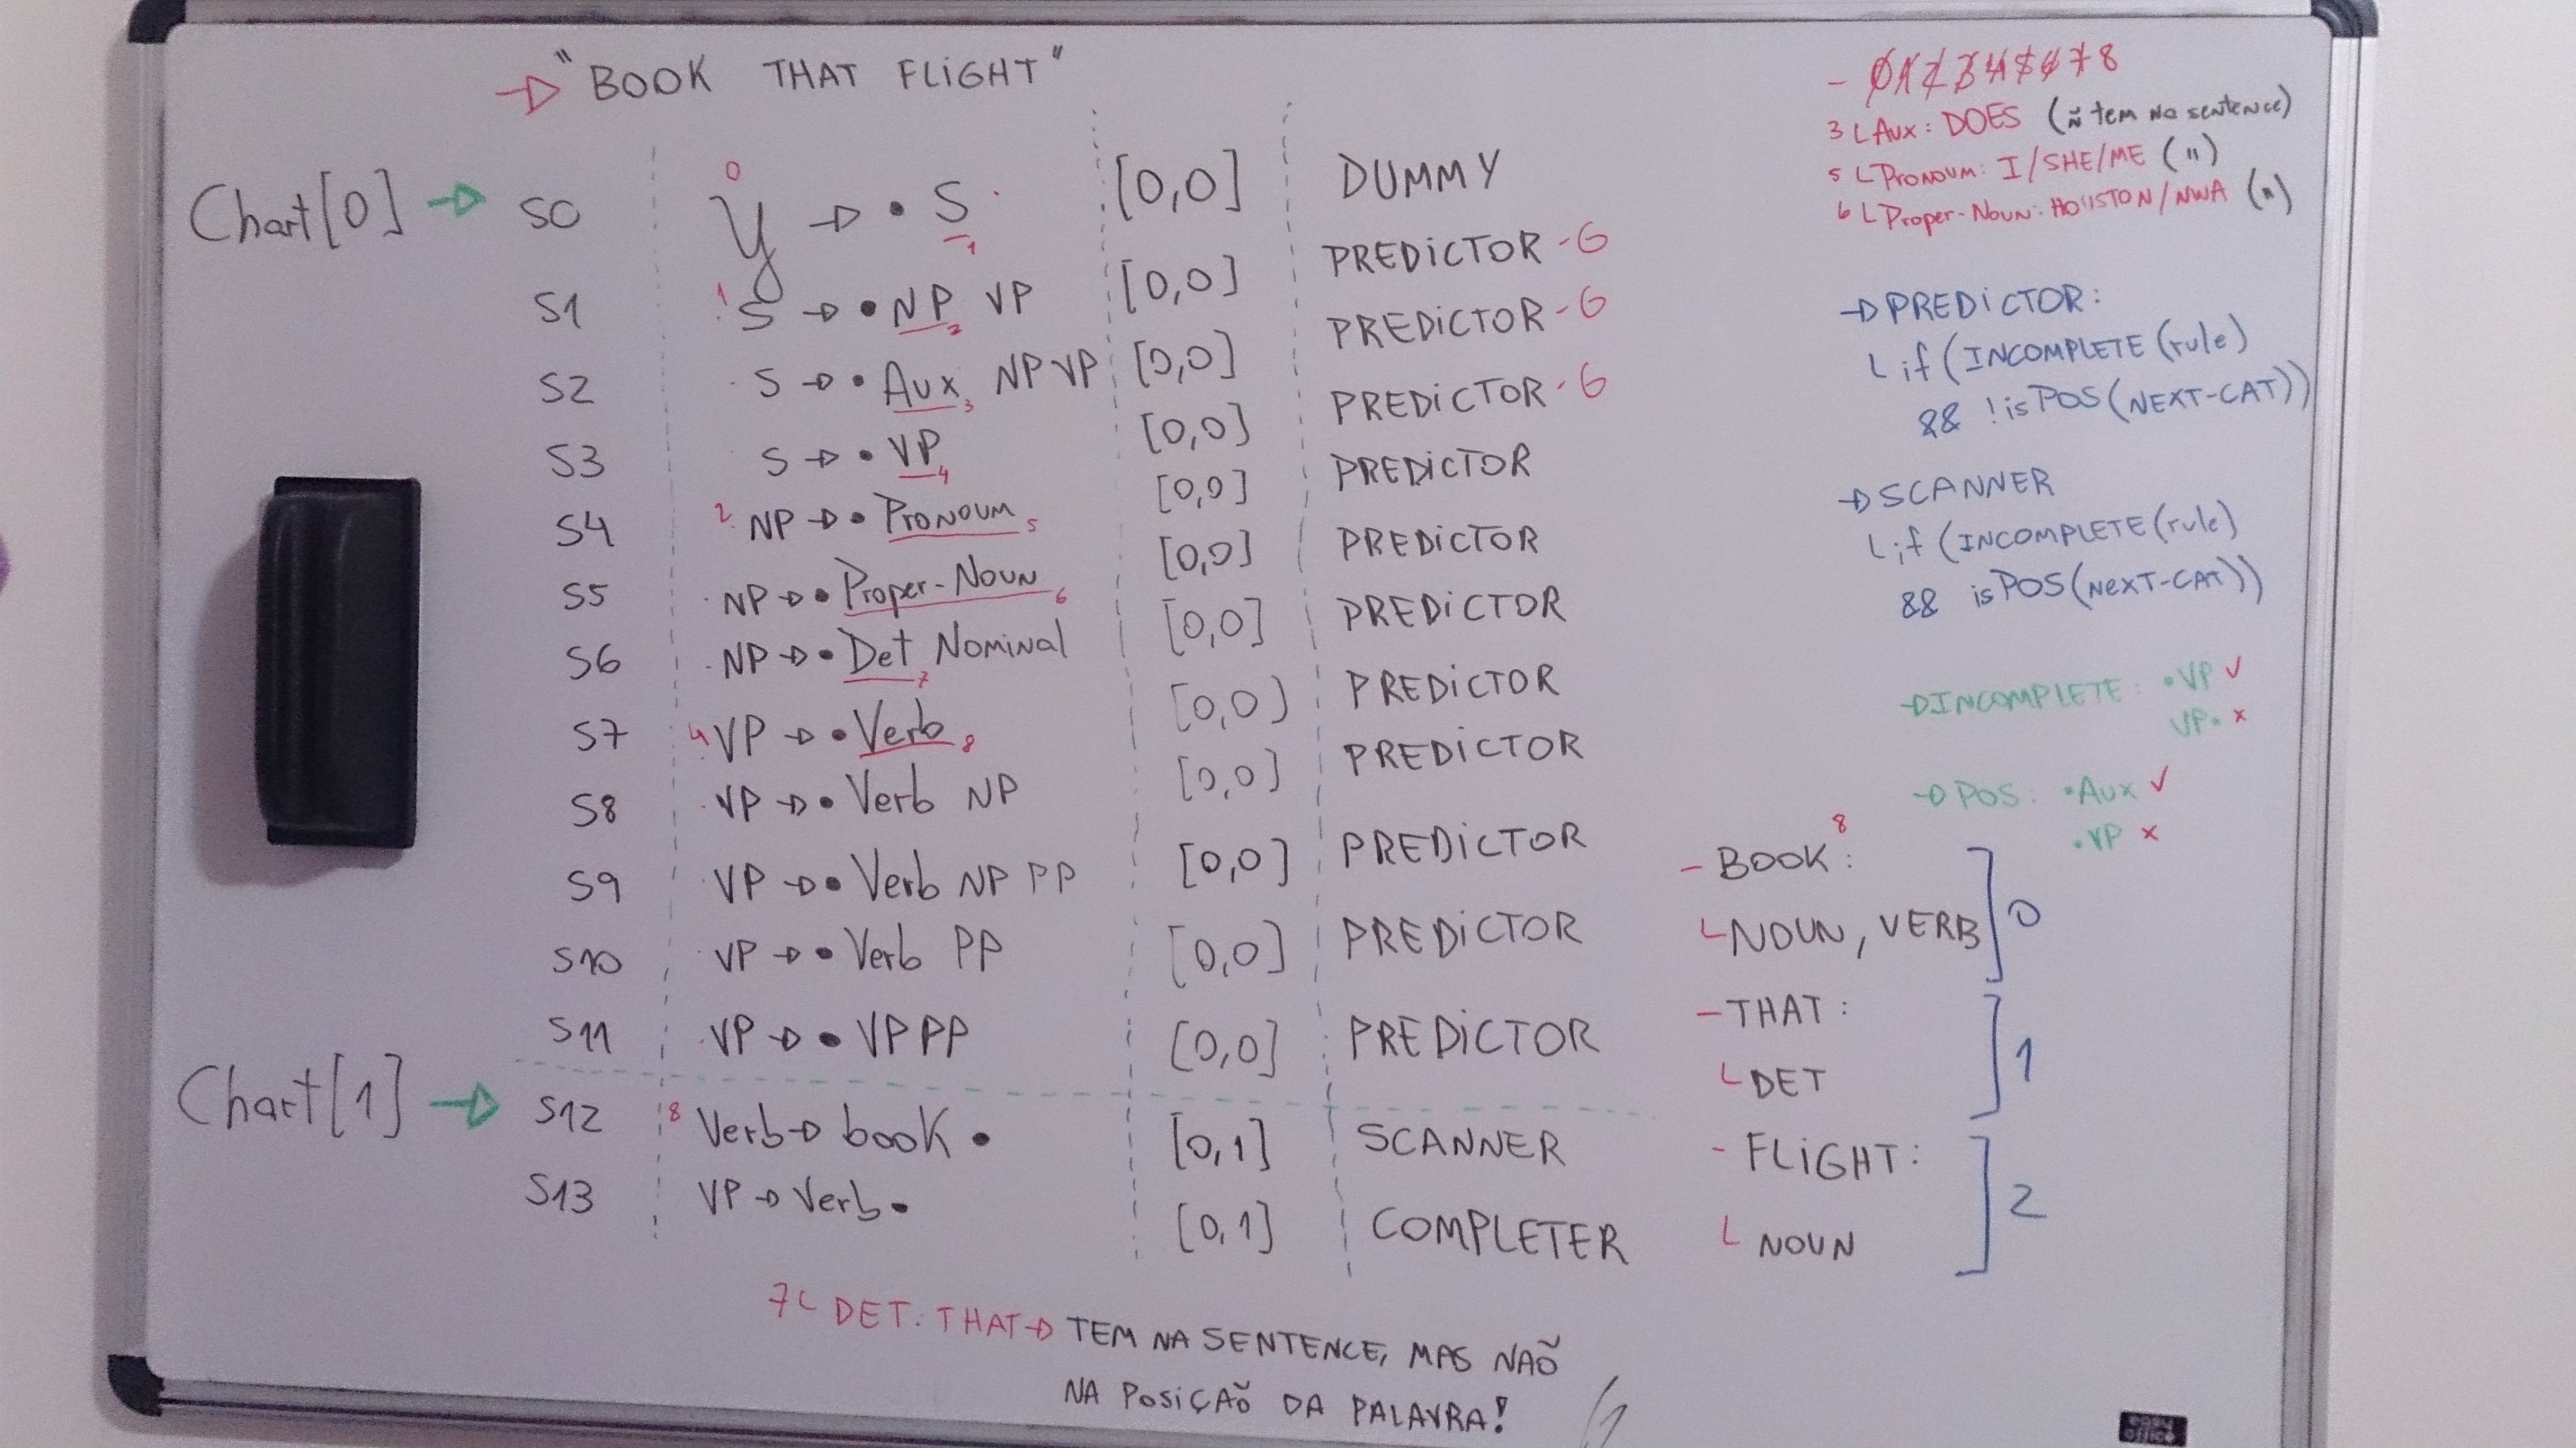 → "BOOK THAT FLIGHT"
Chart[0] → S0 0 γ → • S 1 [0,0] DUMMY
S1 1 S → • NP 2 VP [0,0] PREDICTOR - G
S2 S → • Aux 3 NP VP [0,0] PREDICTOR - G
S3 S → • VP 4 [0,0] PREDICTOR - G
S4 2 NP → • PRONOUM 5 [0,0] PREDICTOR
S5 NP → • Proper-Noun 6 [0,0] PREDICTOR
S6 NP → • Det 7 Nominal [0,0] PREDICTOR
S7 4 VP → • Verb 8 [0,0] PREDICTOR
S8 VP → • Verb NP [0,0] PREDICTOR
S9 VP → • Verb NP PP [0,0] PREDICTOR
S10 VP → • Verb PP [0,0] PREDICTOR
S11 VP → • VP PP [0,0] PREDICTOR
Chart[1] → S12 8 Verb → book • [0,1] SCANNER
S13 VP → Verb • [0,1] COMPLETER
7 L DET: THAT → TEM NA SENTENCE, MAS NAÕ
NA POSIÇAÕ DA PALAVRA!
- 0 1 2 3 4 5 6 7 8
3 L Aux: DOES (ñ tem na sentence)
5 L PRONOUM: I/SHE/ME (")
6 L Proper-Noun: HOUSTON/NWA (")
→ PREDICTOR:
L if (INCOMPLETE(rule)
&& !isPOS(NEXT-CAT))
→ SCANNER
L if (INCOMPLETE(rule)
&& isPOS(NEXT-CAT))
→ INCOMPLETE: •VP ✓
VP• x
→ POS: •Aux ✓
•VP x
- BOOK: 8
L NOUN, VERB ] 0
- THAT:
L DET ] 1
- FLIGHT:
L NOUN ] 2
easy
office